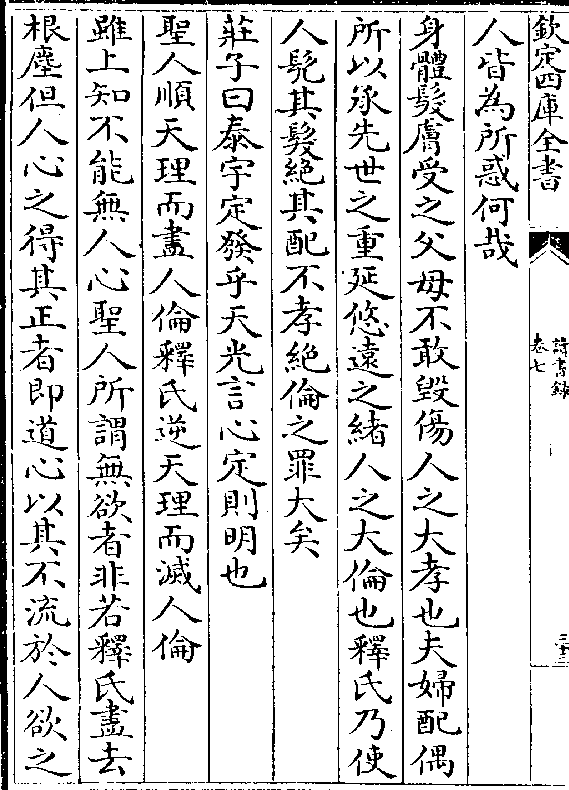 欽定四庫全書
讀書録
卷七
人皆為所惑何哉
身體髮膚受之父母不敢毀傷人之大孝也夫婦配偶
所以承先世之重延悠遠之緒人之大倫也釋氏乃使
人髠其髮絶其配不孝絶倫之罪大矣
莊子曰泰宇定發乎天光言心定則明也
聖人順天理而盡人倫釋氏逆天理而滅人倫
雖上知不能無人心聖人所謂無欲者非若釋氏盡去
根塵但人心之得其正者即道心以其不流於人欲之